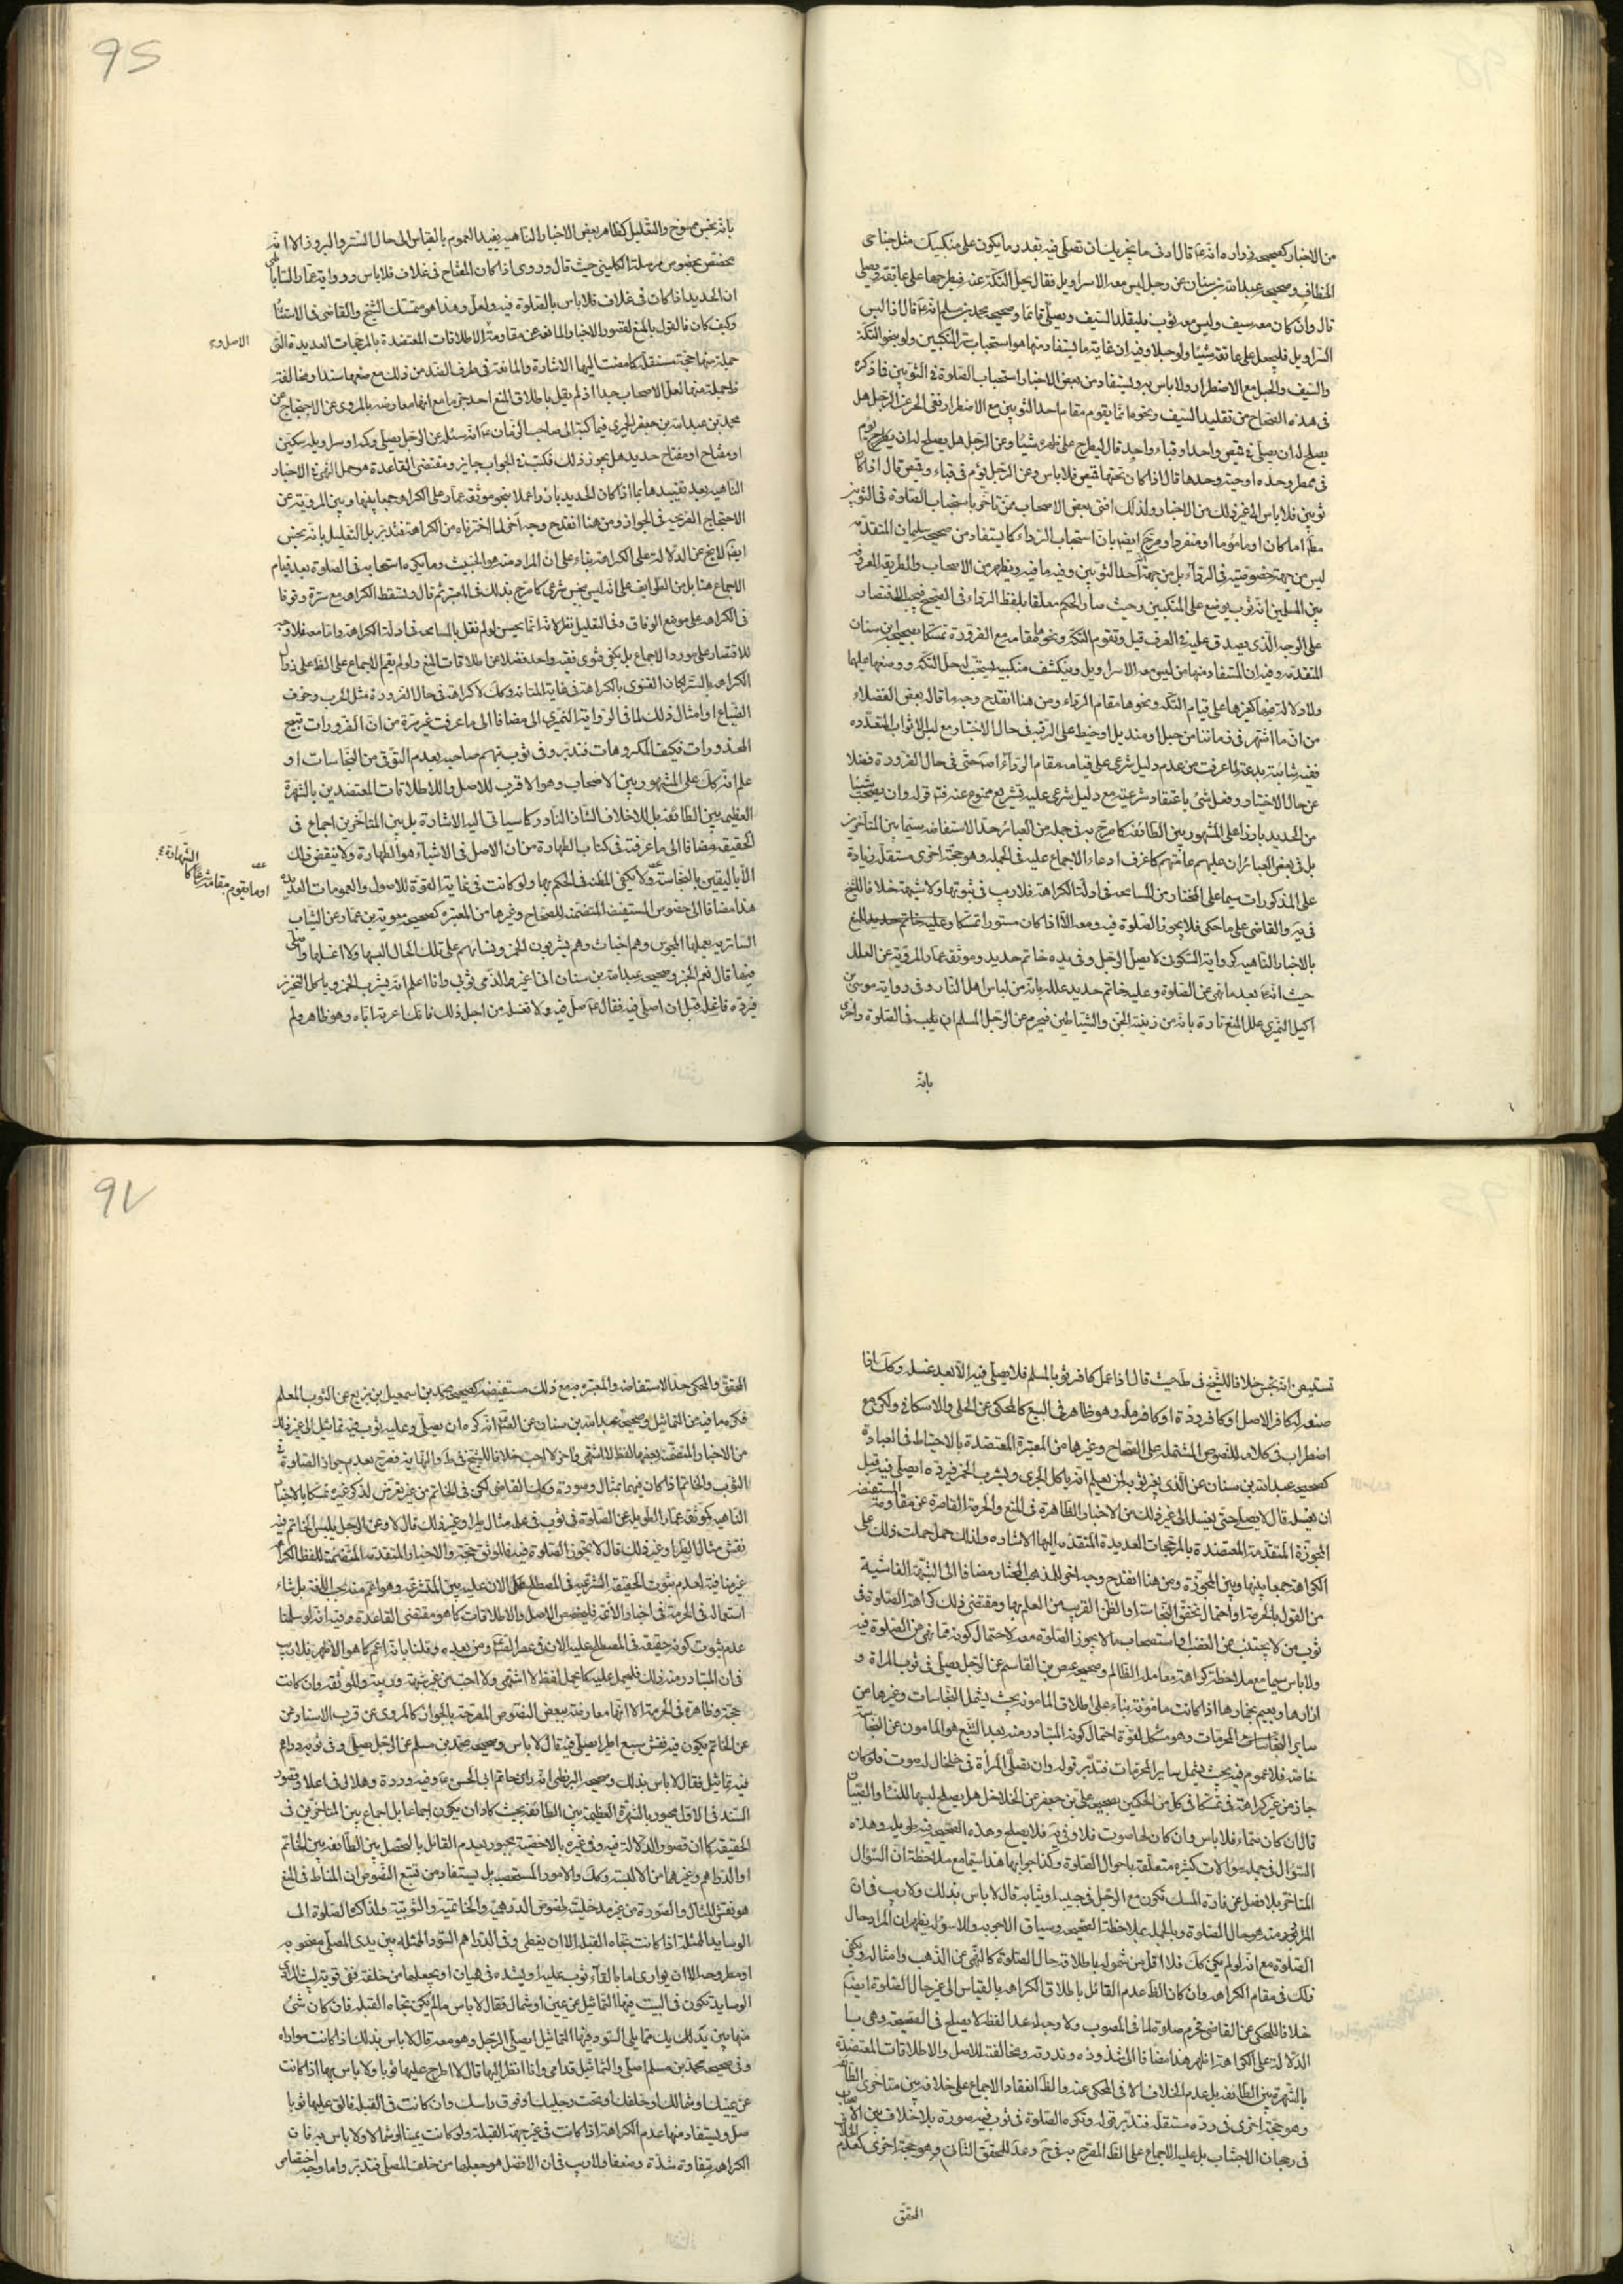 من الاخبار كصحيحة زرارة انه ع قال ادنى ما يجزيك ان تصلى فيه بقدر ما يكون على منكبيك مثل جناحى
الخطاف وصحيحة عبدالله بن سنان عن رجل ليس معه الا سراويل فقال يحل التكة عنه فيطرحها على عاتقه ويصلى
قال وان كان معه سيف وليس معه ثوب فليتقلد السيف ويصلى قائما وصحيحة محمد بن مسلم انه ع قال اذا لبس
السراويل فليجعل على عاتقه شيئا ولو حبلا وفيه ان غاية ما يستفاد منها هو استحباب ستر المنكبين ولو بنحو التكة
والسيف والحبل مع الاضطرار ولا باس به ويستفاد من بعض الاخبار استحباب الصلوة فى الثوبين فاذكره
فى هذه الصحاح من تقليد السيف ونحوه انما يقوم مقام احد الثوبين مع الاضطرار ففى الخبر عن الرجل هل
يصلح له ان يصلى فى قميص واحد او قباء واحد قال ليطرح على ظهره شيئا وعن الرجل هل يصلح له ان يؤم
فى ممطر وحده او جبة وحدها قال اذا كان تحتها قميص فلا باس وعن الرجل يؤم فى قباء وقميص قال اذا كان
ثوبين فلا باس الى غير ذلك من الاخبار ولذلك افتى بعض الاصحاب ممن تاخر باستحباب الصلوة فى الثوبين
اماما كان او ماموما او منفردا وصرح ايضا بان استحباب الرداء كما يستفاد من صحيحة سليمان المتقدمة
ليس من جهة خصوصية فى الرداء بل من جهة احد الثوبين وفيه ما فيه ويظهر من الاصحاب والطريقة المعروفة
بين المسلمين انه ثوب يوضع على المنكبين وحيث صار الحكم معلقا بلفظ الرداء فى الصحيح فيجب الاقتصار
على الوجه الذى يصدق عليه فى العرف قيل وتقوم التكة ونحوها مقامه مع الضرورة تمسكا بصحيحة ابن سنان
المتقدمة وفيه ان المستفاد منها من ليس معه الا سراويل وينكشف منكبيه يستحب له حل التكة ووضعها عليها
ولا دلالة فيها كغيرها على قيام التكة ونحوها مقام الرداء ومن هنا انقدح وجه ما قاله بعض الفضلاء
من ان ما اشتهر فى زماننا من حبل او منديل او خيط على الرقبة فى حال الاختيار مع لبس الاثواب المتعددة
ففيه شائبة بدعة لما عرفت من عدم دليل شرعى على قيامه مقام الرداء اصلا حتى فى حال الضرورة فضلا
عن حال الاختيار وفعل شئ باعتقاد شرعيته مع دليل شرعى عليه تشريع ممنوع عنه قوله وان يستصحب شيئا
من الحديد بارزا على المشهور بين الطائفة كما صرح به فى جملة من العبائر حد الاستفاضة سيما بين المتاخرين
بل فى بعض العبائر ان عليهم عامتهم كما عرف ادعاء الاجماع عليه فى الجملة وهو حجة اخرى مستقلة زيادة
على المذكورات سيما على المختار من المسامحة فى ادلة الكراهة فلا ريب فى ثبوتها ولا شبهة خلافا للشيخ
فى يه والقاضى على ما حكى فلا يجوز الصلوة فيه ومعه الا اذا كان مستورا تمسكا وعليه خاتم حديد للمنع
بالاخبار الناهية كرواية السكونى لا يصلى الرجل وفى يده خاتم حديد وموثقة عمار المروية عن العلل
حيث انه ع بعد ما نهى عن الصلوة وعليه خاتم حديد علله بانه من لباس اهل النار وفى رواية موسى بن
اكيل النميرى علل المنع تارة بانه من زينة الجن والشياطين فيحرم عن الرجل المسلم ان يلبسه فى الصلوة واخرى
بانه
95
بانه نجس ممسوخ والتعليل كظاهر بعض الاخبار الناهية يفيد العموم بالقياس الى حال الستر والبروز الا انه
مخصص بخصوص مرسلة الكلينى حيث قال وروى اذا كان المفتاح فى غلاف فلا باس ورواية عمار الساباطى
ان الحديد اذا كان فى غلاف فلا باس بالصلوة فيه ولعل هذا هو متمسك الشيخ والقاضى فى الاستثناء
وكيف كان فالقول بالمنع لقصور الاخبار المانعة عن مقاومة الاطلاقات المعتضدة بالمرجحات العديدة التى
الاصل و
جملة منها حجة مستقلة كما مضت اليها الاشارة والمانعة فى طرف الضد من ذلك مع ضعفها سندا ومخالفة
فاجملة منها لعمل الاصحاب جدا اذ لم يقل باطلاق المنع احد جزما مع انها معارضة بالمروى عن الاحتجاج عن
محمد بن عبدالله بن جعفر الحميرى فيما كتبه الى صاحب الزمان ع انه سئله عن الرجل يصلى وفى كمه او سراويله سكين
او مفتاح او مفتاح حديد هل يجوز ذلك فكتب فى الجواب جايز ومقتضى القاعدة هو حمل النهى فى الاخبار
الناهية بعد تقييدها بما اذا كان الحديد بارزا عملا بنحو موثقة عمار على الكراهة جمعا بينها وبين المروية عن
الاحتجاج الصريحة فى الجواز ومن هنا انقدح وجه اخر لما اخترناه من الكراهة فتدبر بل التعليل بانه نجس
ايضا لا يخ عن الدلالة على الكراهة بناء على ان المراد منه هو الخبيث وما يكره استصحابه فى الصلوة بعد قيام
الاجماع هنا بل من الطوايف على انه ليس بنجس شرعى كما صرح بذلك فى المعتبر ثم قال ويسقط الكراهة مع ستره وقوفا
فى الكراهة على موضع الوفاق وفى التعليل نظر لانه انما يحسن لو لم نقل بالمسامحة فى ادلة الكراهة واما معه فلا وجه
للاقتصار على مورد الاجماع بل يكفى فتوى فقيه واحد فضلا عن اطلاقات المنع ولو لم يقم الاجماع على الظ على زوال
الكراهة بالستر لكان الفتوى بالكراهة فى غاية المتانة وكك لا كراهة فى حال الضرورة مثل الحرب وخوف
الضياع او امثال ذلك لما فى الرواية النميرى الى مضافا الى ما عرفت غير مرة من ان الضرورات تبيح
المحذورات فكيف المكروهات فتدبر وفى ثوب يتهم صاحبه بعدم التوقى من النجاسات او
علم انه كك على المشهور بين الاصحاب وهو الاقرب للاصل والاطلاقات المعتضدين بالشهرة
العظيمة بين الطائفة بل لا خلاف الشاذ النادر كما سياتى اليه الاشارة بل بين المتاخرين اجماع فى
الحقيقة مضافا الى ما عرفته فى كتاب الطهارة من ان الاصل فى الاشياء هو الطهارة ولا ينقض ذلك
الا باليقين بالنجاسة ولا يكفى المظنة فى الحكم بها ولو كانت فى غاية القوة للاصول والعمومات العديدة
او ما يقوم مقامه شرعا كالشهادة
هذا مضافا الى خصوص المستفيضة المتضمنة للصحاح وغيرها من المعتبرة كصحيحة معوية بن عمار عن الثياب
السابرية يعملها المجوس وهم اخباث وهم يشربون الخمر ونساؤهم على تلك الحال البسها ولا اغسلها واصلى
فيها قال نعم الخبر وصحيحة عبدالله بن سنان انى اعير الذمى ثوبى وانا اعلم انه يشرب الخمر وياكل الخنزير
فيرده فاغسله قبل ان اصلى فيه فقال ع صل فيه ولا تغسله من اجل ذلك فانك اعرته اياه وهو طاهر ولم
تستيقن انه نجسه خلافا للشيخ فى ط حيث قال اذا عمل كافر ثوبا لمسلم فلا يصلى فيه الا بعد غسله وكك اذا
صبغه له كافر الاصل او كافر ردة او كافر ملة وهو ظاهر فى المحكى عن الحلى والاسكافى ولكن مع
اضطراب فى كلامه للنصوص المشتملة على الصحاح وغيرها من المعتبرة المعتضدة بالاحتياط فى العبادة
كصحيحة عبدالله بن سنان عن الذى يعير ثوبه لمن يعلم انه ياكل الجرى ويشرب الخمر فيرده ايصلى فيه قبل
ان يغسله قال لا يصلى حتى يغسله الى غير ذلك من الاخبار الظاهرة فى المنع والحرمة القاصرة عن مقاومة المستفيضة
المجوزة المتقدمة المعتضدة بالمرجحات العديدة المتقدمة اليها الاشارة ولذلك حمل جملة ذلك على
الكراهة جمعا بينها وبين المجوزة ومن هنا انقدح وجه اخر للمذهب المختار مضافا الى الشبهة الناشية
من القول بالحرمة او احتمال تحقق النجاسة او الظن القريب من العلم بها ومقتضى ذلك كراهة الصلوة فى
ثوب من لا يجتنب عن الغصب او استصحاب ما لا يجوز الصلوة معه لاحتمال كونه مما نهى عن الصلوة فيه
ولا باس سيما مع ملاحظة كراهة معاملة الظالم وصحيحة عيص بن القاسم عن الرجل يصلى فى ثوب المراة و
ازارها ويعتم بخمارها اذا كانت مامونة بناء على اطلاق المامونة بحيث يشمل النجاسات وغيرها من
ساير المحرمات وهو مشكل لقوة احتمال كونه المتبادر منه بعد التتبع هو المامون عن النجاسة
خاصة فلا عموم فيه بحيث يشمل ساير المحرمات فتدبر قوله وان تصلى المرأة فى خلخال له صوت فلو كان
جاز من غير كراهة فى تمسكا فى كل من الحكمين بصحيحة على بن جعفر عن الخلاخل هل يصلح لبسها للنساء والصبيان
قال ان كان صماء فلا باس وان كان لها صوت فلا وفى يه فلا يصلح وهذه الصحيحة فيه طويلة وهذه
السؤال فى جملة سؤالات كثيرة متعلقة باحوال الصلوة وكذا جوابها هذا سيما مع ملاحظة ان السؤال
المتاخر بلا فصل عن فارة المسك تكون مع الرجل فى جيبه او ثيابه قال لا باس بذلك ولا ريب فى ان
المراد منه هو حال الصلوة وبالجملة بملاحظة الصحيحة وسياق الاجوبة والاسؤلة يظهر ان المراد حال
الصلوة مع انه لو لم يكن كك فلا اقل من شموله باطلاقه حال الصلوة كالنهى عن الذهب وامثاله ويكفى
ذلك فى مقام الكراهة وان كان الظ عدم القائل باطلاق الكراهة بالقياس الى غير حال الصلوة ايضا
خلافا للمحكى عن القاضى فحرم صلوتها فى المصوب ولا وجه له عدا لفظ لا يصلح فى الصحيحة وهى بـا
الدلالة على الكراهة اظهر هذا مضافا الى شذوذه وندرته ومخالفته للاصل والاطلاقات المعتضدة
بالشهرة بين الطائفة بل عدم الخلاف الا فى المحكى عنه والظ انعقاد الاجماع على خلافه بين متاخرى الطائفة
وهو حجة اخرى فى رده مستقلة فتدبر قوله وتكره الصلوة فى ثوب فيه صورة بلا خلاف بين الاصحاب
فى رجحان الاجتناب بل عليه الاجماع على الظ المصرح به فى ح وعد للمحقق الثانى وهو حجة اخرى كعدم الخلاف
المحقق
97
المحقق والمحكى حد الاستفاضة والمعتبرة مع ذلك مستفيضة كصحيحة محمد بن اسمعيل بن بزيع عن الثوب المعلم
فكره ما فيه من التماثيل وصحيحة عبدالله بن سنان عن الص ع انه كره ان يصلى وعليه ثوب فيه تماثيل الى غير ذلك
من الاخبار المتضمنة بعضها لفظ لا اشتهى واخر لا احب خلافا للشيخ فى ط والنهاية فصرح بعدم جواز الصلوة فى
الثوب والخاتم اذا كان فيهما تمثال وصورة وكك القاضى لكن فى الخاتم من غير تعرض لذكر غيره تمسكا بالاخبار
الناهية كموثقة عمار الطويلة عن الصلوة فى ثوب فى علمه مثال طير او غير ذلك قال لا وعن الرجل يلبس الخاتم فيه
نقش مثال الطير او غير ذلك قال لا يجوز الصلوة فيه فالموثق حجة والاخبار المتقدمة المتضمنة للفظ الكراهة
غير منافية لعدم ثبوت الحقيقة الشرعية فى المصطلح عليه الان عليه بين المتشرعة وهو اعم منه بحسب اللغة بل شاء
استعماله فى الحرمة فى اخبار الائمة فليخصص الاصل والاطلاقات كما هو مقتضى القاعدة وفيه انه لو سلمنا
عدم ثبوت كونه حقيقة فى المصطلح عليه الان فى عصر الص ع ومن بعده وقلنا بانه اعم كما هو الاظهر فلا ريب
فى ان المتبادر منه ذلك فليحمل عليه كما يحمل لفظ لا اشتهى ولا احب من غير شبهة وريبة والموثقة وان كانت
حجة وظاهرة فى الحرمة الا انها معارضة ببعض النصوص المصرحة بالجواز كالمروى عن قرب الاسناد عن
عن الخاتم يكون فيه نقش سبع او طير ايصلى فيه قال لا باس وصحيحة محمد بن مسلم عن الرجل يصلى وفى ثوبه دراهم
فيه تماثيل فقال لا باس بذلك وصحيحة البزنطى انه راى خاتم ابى الحسن ع وفيه وردة وهلال فى اعلاه وقصور
السند فى الاول مجبور بالشهرة العظيمة بين الطائفة بحيث كاد ان يكون اجماعا بل اجماع بين المتاخرين فى
الحقيقة كما ان قصور الدلالة فيه وفى غيره بالاخصية مجبور بعدم القائل بالفصل بين الطائفة بين الخاتم
او الدراهم وغيرهما من الالبسة وكك والامور المستصحبة بل يستفاد من تتبع النصوص ان المناط فى المنع
هو نقش المثال والصورة من غير مدخلية لخصوص الدرهمية والخاتمية والثوبية ولذا كره الصلوة الى
الوسايد الممثلة اذا كانت تجاه القبلة الا ان يغطى وفى الدراهم السود الممثلة بين يدى المصلى
او مطروحة الا ان يوارى اما بالقاء ثوب عليه او بشده فى هميان او يجعلها من خلفه ففى
الوسايد تكون فى البيت فيها التماثيل عن يمين او شمال فقال لا باس ما لم يكن تجاه القبلة فان كان شئ
منها بين يديك مما يلى السود فيها التماثيل ايصلى الرجل وهو معه قال لا باس بذلك اذا كانت مواراة
وفى صحيحة محمد بن مسلم اصلى والتماثيل قدامى وانا انظر اليها قال لا اطرح عليها ثوبا ولا باس بها اذا كانت
عن يمينك او شمالك او خلفك او تحت رجليك او فوق راسك وان كانت فى القبلة فالق عليها ثوبا
وصل ويستفاد منها عدم الكراهة اذا كانت فى غير جهة القبلة ولو كانت يمينا او شمالا ولا باس به فان
الكراهة متفاوتة شدة وضعفا ولا ريب فى ان الافضل هو جعلها من خلف المصلى فتدبر واما وجه اختصاص